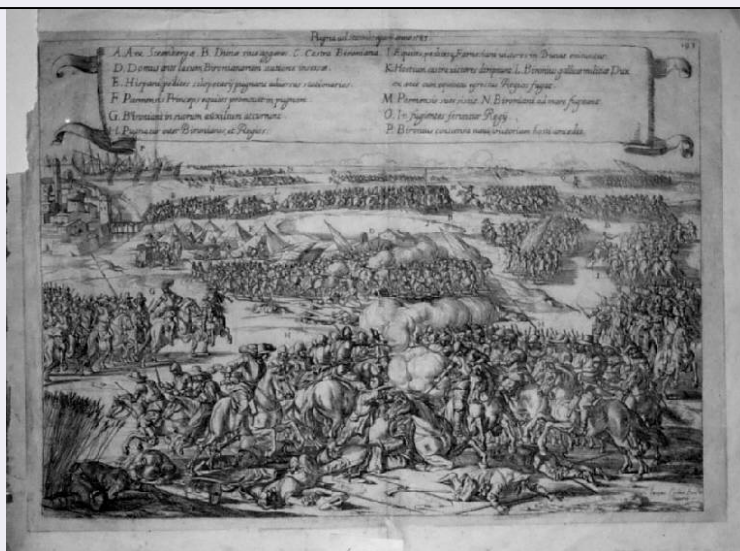 Pugna ad Steenbergam anno 1583.
193
A. Arx Steenbergæ B. Dunæ siue aggeres. C. Castra Bironiana
D. Domus ante lacum Bironianorum statione insessæ.
E. Hispani pedites sclopetarij pugnam aduersus
F. Parmensis Princeps equites promouet in pugnam
G. Bironiani in suorum auxilium accurrunt
H. Pugnatur inter Bironianos, et Regios.
I. Equites peditesq; Farnesiani victores in Dunas
K. Hostium castra victores diripiunt L. Bironius gallicæ militiæ Dux
cum equitatu Regios fugat
M. Parmensis suos N. Bironiani ad mare fugiunt
O. In fugientes feruntur Regij
P. Bironius hosti